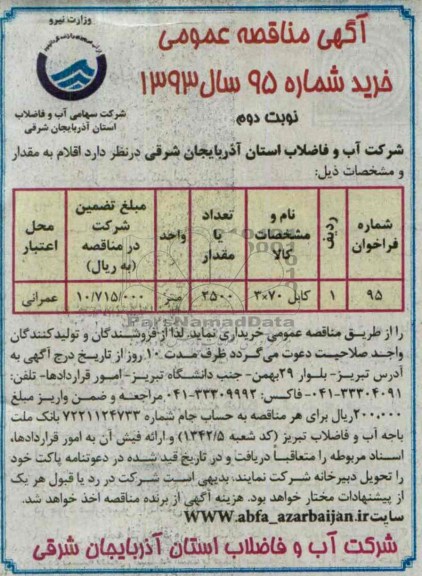 وزارت نیرو
شرکت سهامی آب و فاضلاب
استان آذربایجان شرقی
آگهی مناقصه عمومی
خرید شماره ۹۵ سال ۱۳۹۳
نوبت دوم
شرکت آب و فاضلاب استان آذربایجان شرقی درنظر دارد اقلام به مقدار
و مشخصات ذیل:
شماره فراخوان	ردیف	نام و مشخصات کالا	تعداد یا مقدار	واحد	مبلغ تضمین شرکت در مناقصه (به ریال)	محل اعتبار
۹۵	۱	کابل ۷۰×۳	۲۵۰۰	متر	۱۰/۷۱۵/۰۰۰	عمرانی
ParsNamadData
را از طریق مناقصه عمومی خریداری نماید. لذا از فروشندگان و تولیدکنندگان
واجد صلاحیت دعوت می‌گردد ظرف مدت ۱۰ روز از تاریخ درج آگهی به
آدرس تبریز- بلوار ۲۹بهمن- جنب دانشگاه تبریز- امور قراردادها- تلفن:
۰۴۱-۳۳۳۰۴۰۹۱- فاکس: ۰۴۱-۳۳۳۰۹۹۹۲ مراجعه و ضمن واریز مبلغ
۲۰۰،۰۰۰ ریال برای هر مناقصه به حساب جام شماره ۷۲۲۱۱۲۴۷۳۳ بانک ملت
باجه آب و فاضلاب تبریز (کد شعبه ۱۳۴۲/۵) و ارائه فیش آن به امور قراردادها،
اسناد مربوطه را متعاقباً دریافت و در تاریخ قید شده در دعوتنامه پاکت خود
را تحویل دبیرخانه شرکت نمایند. بدیهی است شرکت در رد یا قبول هر یک
از پیشنهادات مختار خواهد بود. هزینه آگهی از برنده مناقصه اخذ خواهد شد.
سایت WWW.abfa_azarbaijan.ir
شرکت آب و فاضلاب استان آذربایجان شرقی